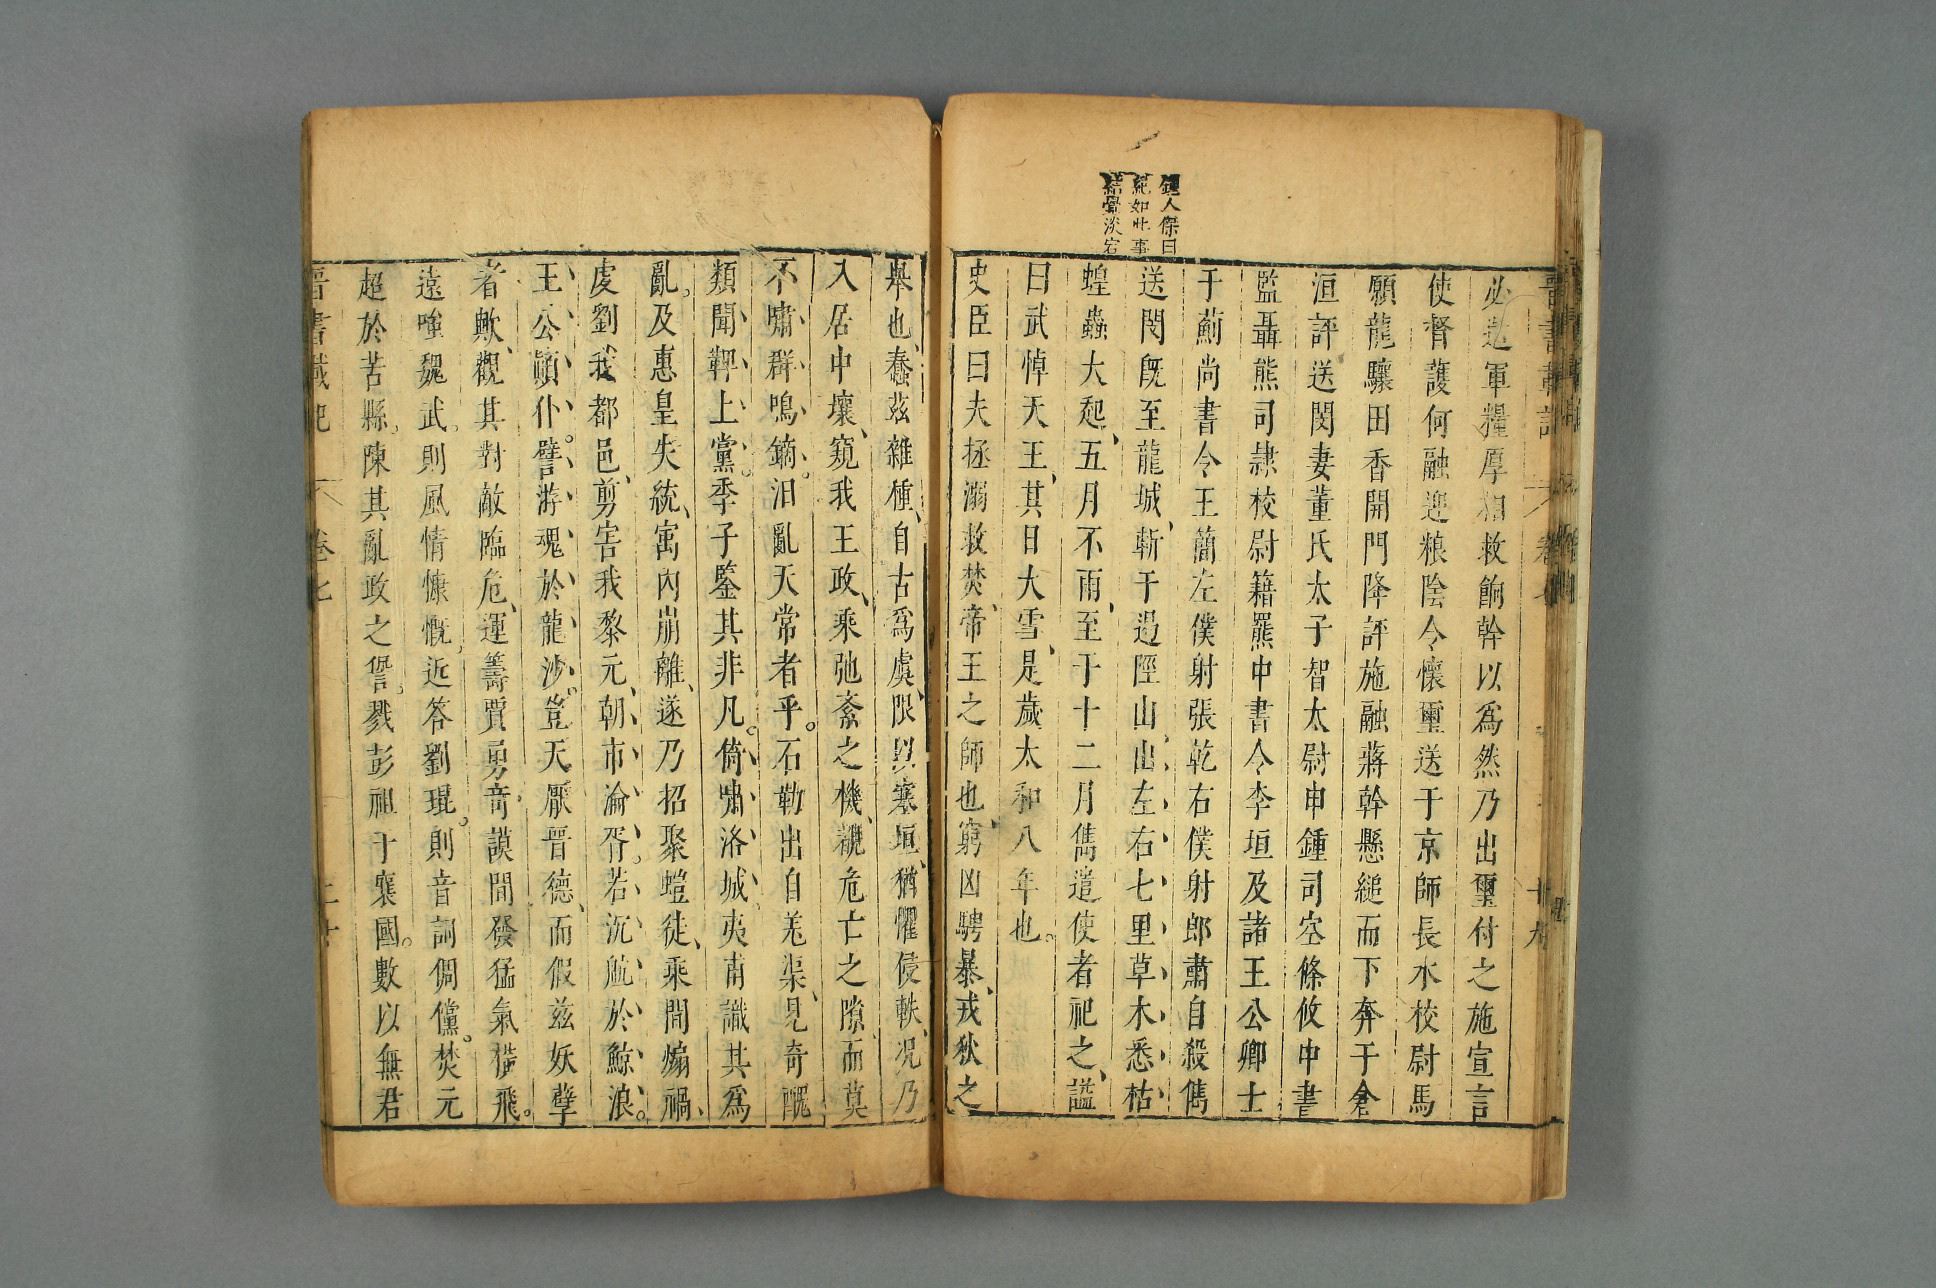 鍾人傑曰
紀如此事
必遣軍糧厚相救餉幹以爲然乃出璽付之施宣言
使督護何融迎粮陰令懷璽送于京師長水校尉馬
願龍驤田香開門降評施融蔣幹懸縋而下奔于倉
洹評送閔妻董氏太子智太尉申鍾司空條攸中書
監聶熊司隷校尉籍羆中書令李垣及諸王公卿士
于薊尚書令王簡左僕射張乾右僕射郎肅自殺儁
送閔既至龍城斬于遏陘山山左右七里草木悉枯
蝗蟲大起五月不雨至于十二月儁遣使者祀之謚
曰武悼天王其日大雪是歲太和八年也
史臣曰夫拯溺救焚帝王之師也窮凶騁暴戎狄之
舉也蠢茲雜種自古爲虞限以塞垣猶懼侵軼况乃
入居中壤窺我王政乘弛紊之機覩危亡之隙而莫
不嘯群鳴鏑汩亂天常者乎石勒出自羌渠見奇醜
類聞鞞上黨季子鑒其非凡倚嘯洛城夷甫識其爲
亂及惠皇失統寓内崩離遂乃招聚螘徒乘間煽禍
虔劉我都邑剪害我黎元朝市淪胥若沉航於鯨浪
王公顛仆譬游魂於龍沙豈天厭晉德而假茲妖孽
者歟觀其對敵臨危運籌賈勇奇謨間發猛氣橫飛
遠嗤魏武則風情慷慨近答劉琨則音詞倜儻焚元
超於苦縣陳其亂政之諐戮彭祖于襄國數以無君
晉書載記
卷七